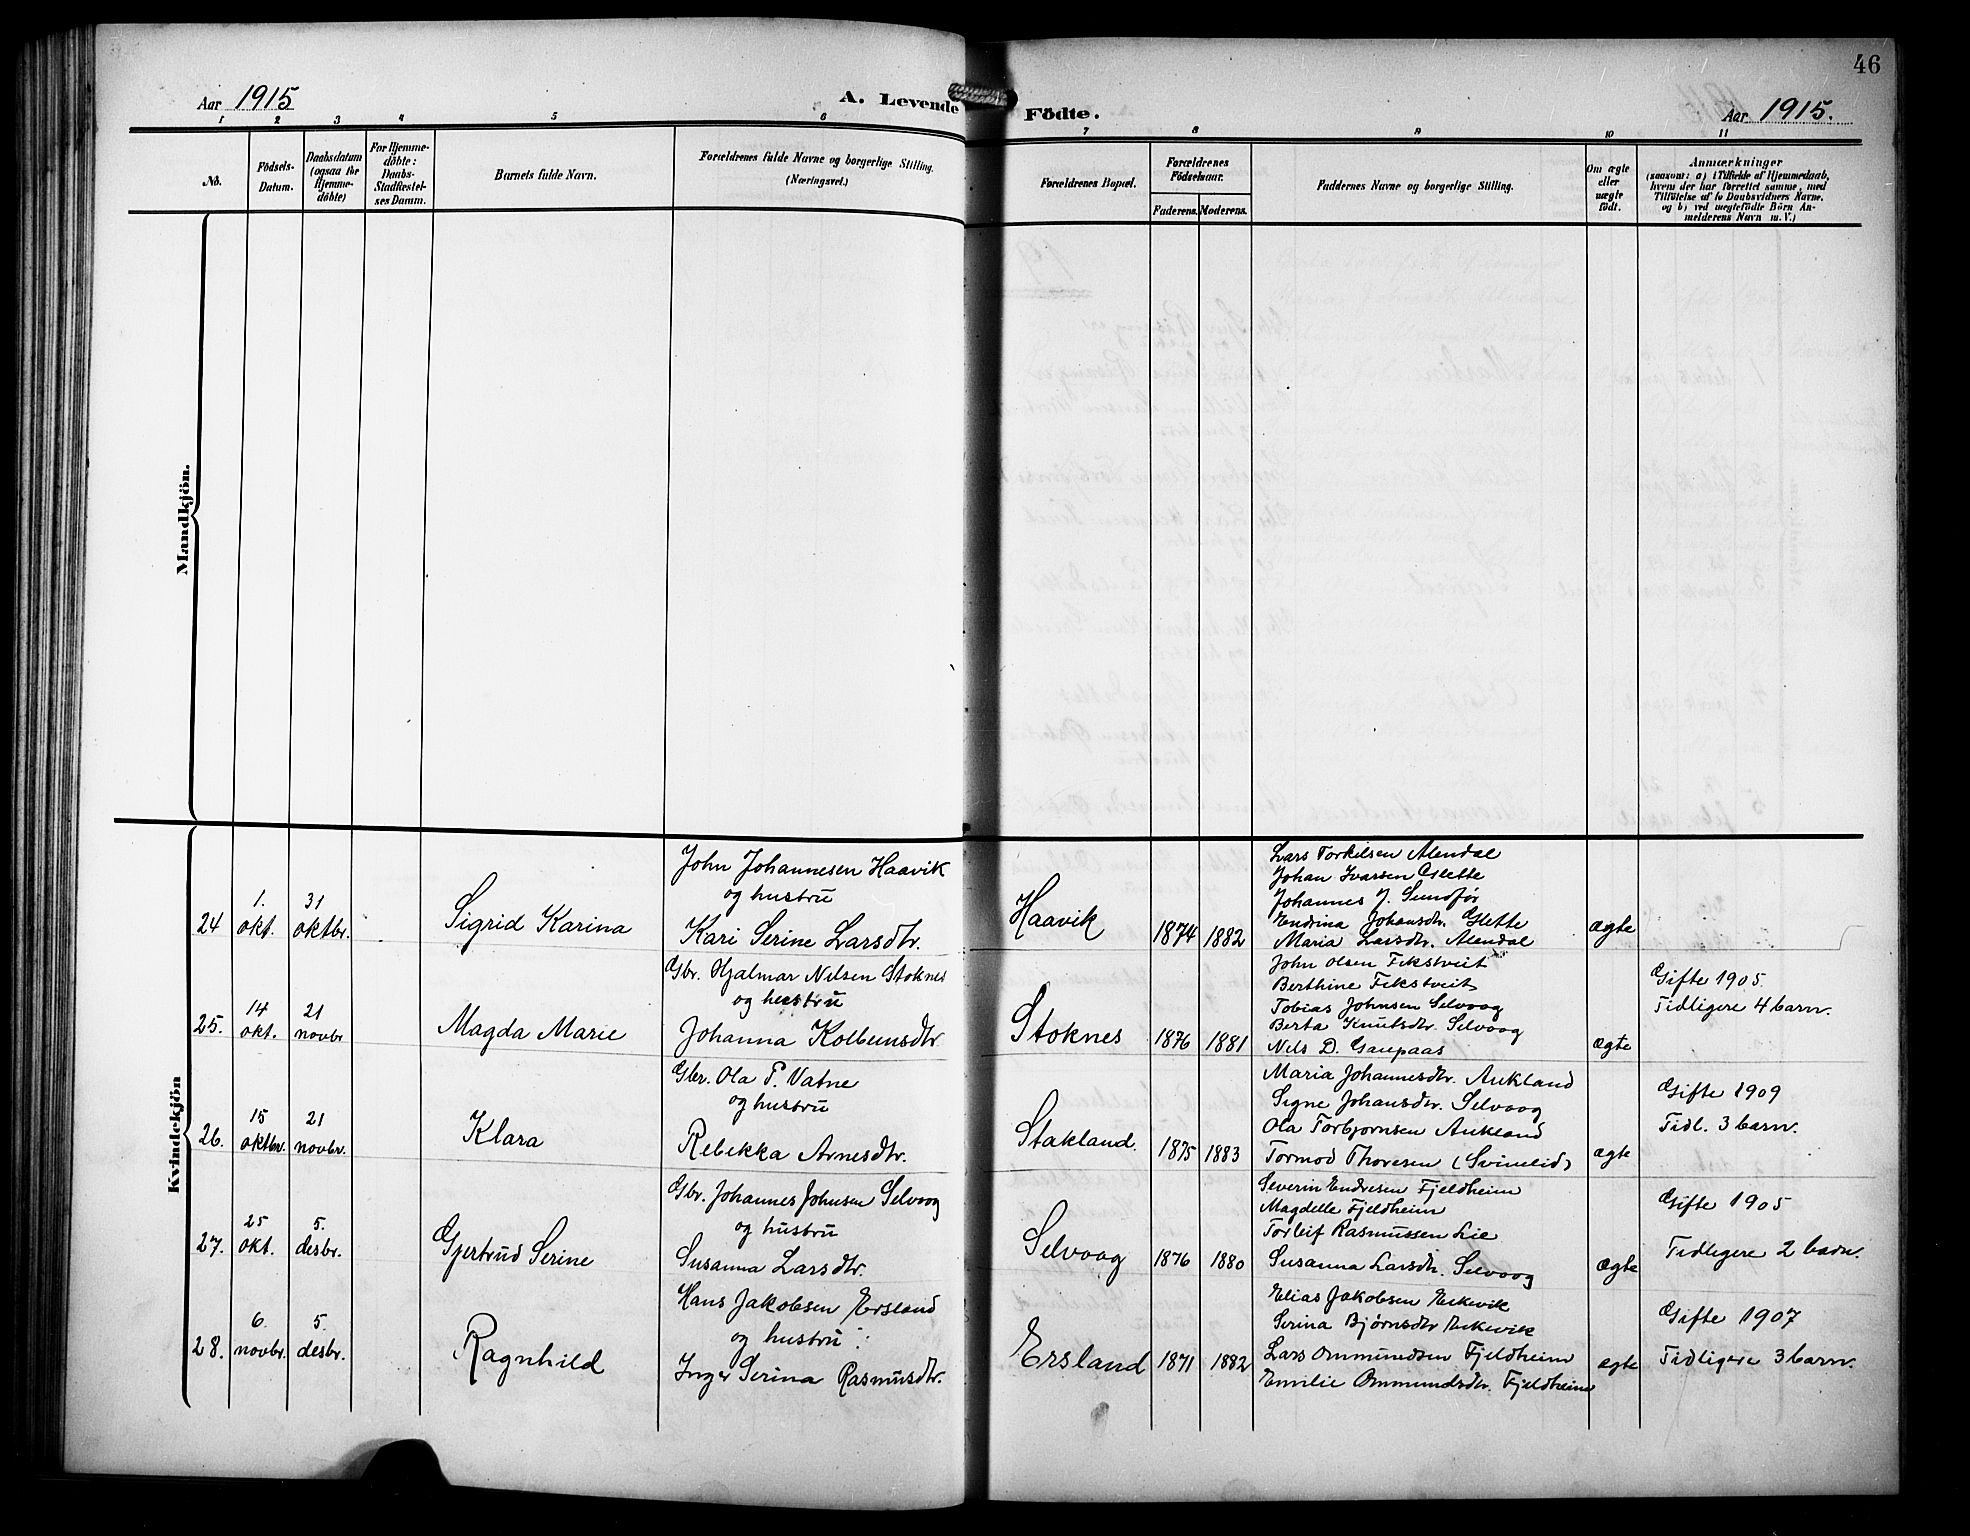 46
Aar 1915
A. Levende Födte.
Aar 1915.
1 2 3 4 5 6 7 8 9 10 11
No.
Födsels-
Datum.
Daabsdatum
(ogsaa for
Hjemme-
döbte)
For Hjemme-
döbte:
Daabs-
Stadfæstel-
ses Datum.
Barnets fulde Navn.
Forældrenes fulde Navne og borgerlige Stilling.
(Næringsvei.)
Forældrenes Bopæl.
Forældrenes
Födselsaar.
Faderens. Moderens.
Faddernes Navne og borgerlige Stilling.
Om ægte
eller
uægte
født.
Anmærkninger
(saasom: a) i Tilfælde af Hjemmedaab,
hvem der har forrettet samme, med
Tilföielse af to Daabsvidners Navne,
og b) ved uægtefödte Börn An-
melderens Navn m. V.)
Mandkjön.
Kvindekjön
24
1.
okt.
31
oktbr.
Sigrid Karina
John Johannesen Haavik
og hustru
Kari Serine Larsdtr.
Haavik
1874
1882
Lars Torkilsen Alendal
Johan Ivarsen Glette
Johannes J. Sundför
Endrina Johansdtr. Glette
Maria Larsdtr. Alendal
ægte
25.
14
okt.
21
novbr
Magda Marie
Gbr. Hjalmar Nilsen Stoknes
og hustru
Johanna Kolbeinsdtr
Stoknes
1876
1881
John Olsen Tekstveit
Berthine Tekstveit
Tobias Johnsen Selvaag
Berta Knutsdtr. Selvaag
Nils D. Gaupaas
ægte
Gifte 1905.
Tidligere 4 barn.
26.
15
oktbr.
21
novbr.
Klara
Gbr. Ola P. Vatne
og hustru
Rebekka Arnesdtr.
Stakland.
1875
1883
Maria Johannesdtr. Aukland
Signe Johansdtr. Selvaag
Ola Torbjørnsen Aukland
Tormod Thoresen (Svinelid)
ægte
Gifte 1909
Tidl. 3 barn.
27.
25
okt.
5.
desbr.
Gjertrud Serine
Gbr. Johannes Johnsen Selvaag
og hustru
Susanna Larsdtr.
Selvaag
1876
1880
Severin Endresen Fjeldheim
Magdelle Fjeldheim
Torleif Rasmussen Lie
Susanna Larsdtr. Selvaag
ægte
Gifte 1905
Tidligere 2 barn.
28.
6.
novbr.
5.
desbr.
Ragnhild
Hans Jakobsen Ersland
og hustru:
Inger Serina Rasmusdtr.
Ersland
1871
1882
Elias Jakobsen Eikevik
Serina Bjørnsdtr Eikevik
Lars Ommundsen Fjeldheim
Emilie Ommundsdtr. Fjeldheim
ægte
Gifte 1907
Tidligere 3 barn.